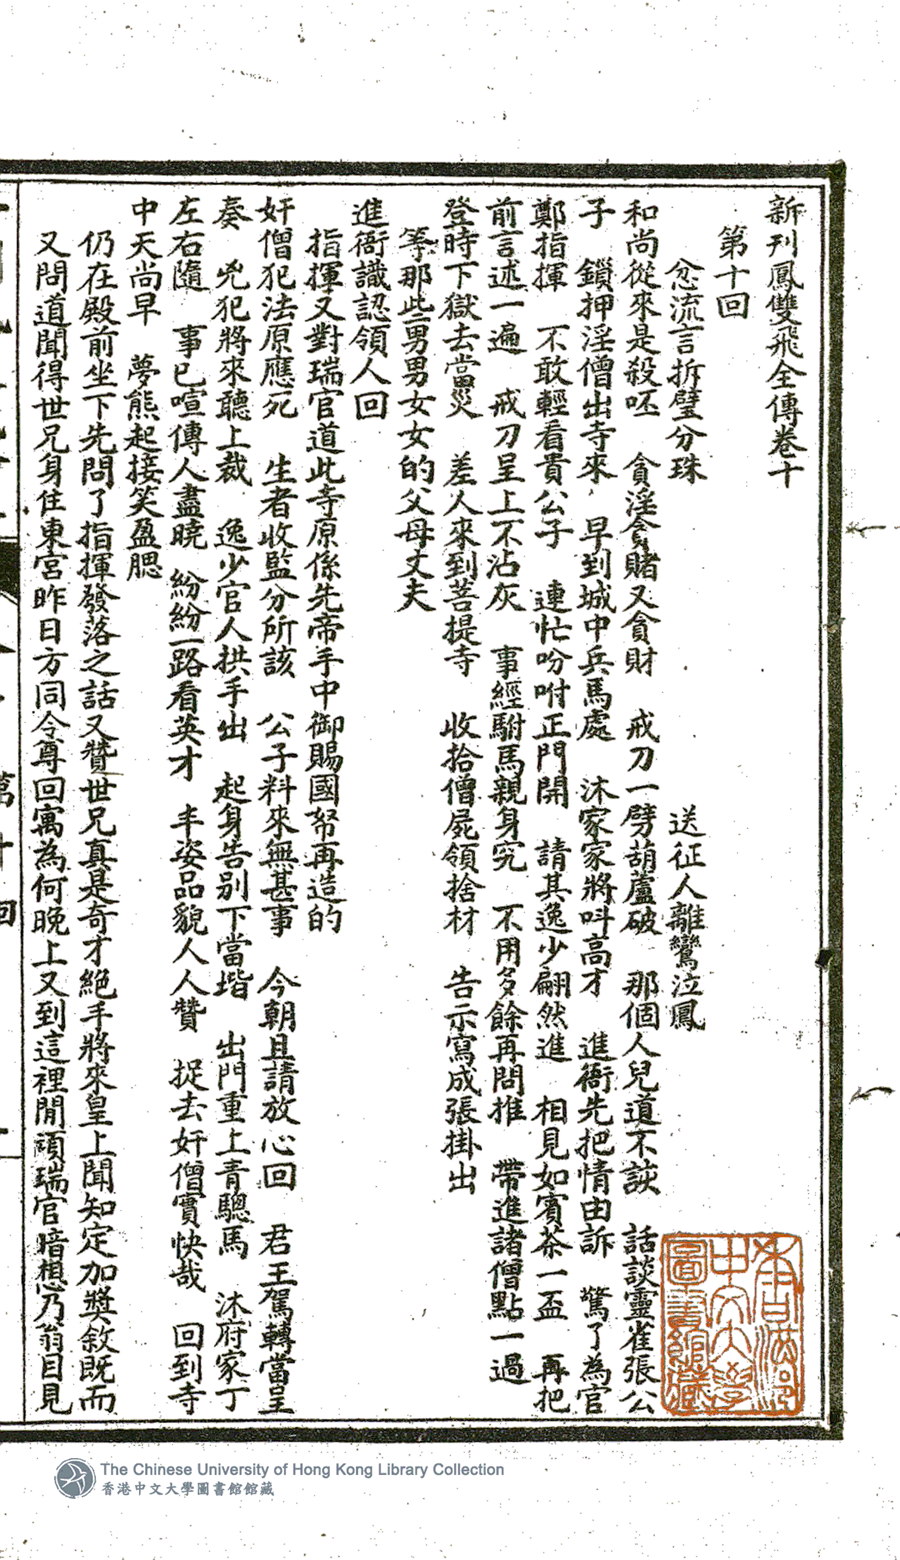 新刊鳳雙飛全傳卷十
第十回
忿流言拆璧分珠　送征人離鸞泣鳳
和尚從來是殺呸　貪淫貪賭又貪財　戒刀一劈葫蘆破　那個人兒道不詼　話談靈雀張公
子　鎖押淫僧出寺來　早到城中兵馬處　沐家家將呌高才　進衙先把情由訴　驚了為官
鄭指揮　不敢輕看貴公子　連忙吩咐正門開　請其逸少翩然進　相見如賓茶一盃　再把
前言述一遍　戒刀呈上不沾灰　事經駙馬親身究　不用多餘再問推　帶進諸僧點一過
登時下獄去當災　差人來到菩提寺　收拾僧屍領捨材　告示寫成張掛出
等那些男男女女的父母丈夫
進衙識認領人回
指揮又對瑞官道此寺原係先帝手中御賜國帑再造的
奸僧犯法原應死　生者收監分所該　公子料來無甚事　今朝且請放心回　君王駕轉當呈
奏　兇犯將來聽上裁　逸少官人拱手出　起身告别下當堦　出門重上青驄馬　沐府家丁
左右隨　事已喧傳人盡曉　紛紛一路看英才　丰姿品貌人人贊　捉去奸僧實快哉　回到寺
中天尚早　夢熊起接笑盈腮
仍在殿前坐下先問了指揮發落之話又贊世兄真是奇才絕手將來皇上聞知定加獎敘既而
又問道聞得世兄身住東宮昨日方同令尊回寓為何晚上又到這裡閒頑瑞官暗想乃翁目見
第十回
The Chinese University of Hong Kong Library Collection
香港中文大學圖書館館藏
香港中文大學圖書館藏